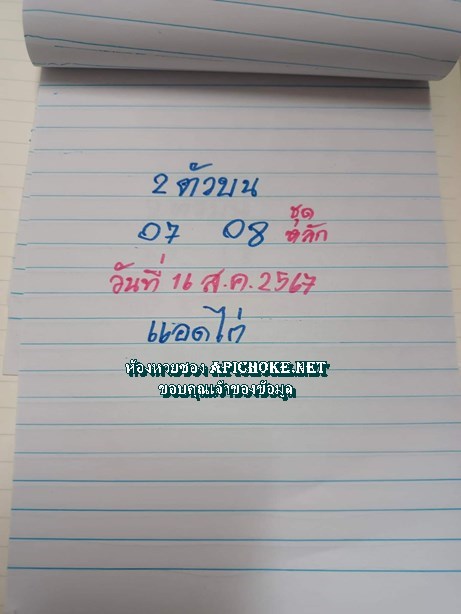 2 ตัวบน
07 08 ชุดหลัก
วันที่ 16 ส.ค. 2567
แอดไก่
ห้องหวยซอง APICHOKE.NET
ขอบคุณเจ้าของข้อมูล